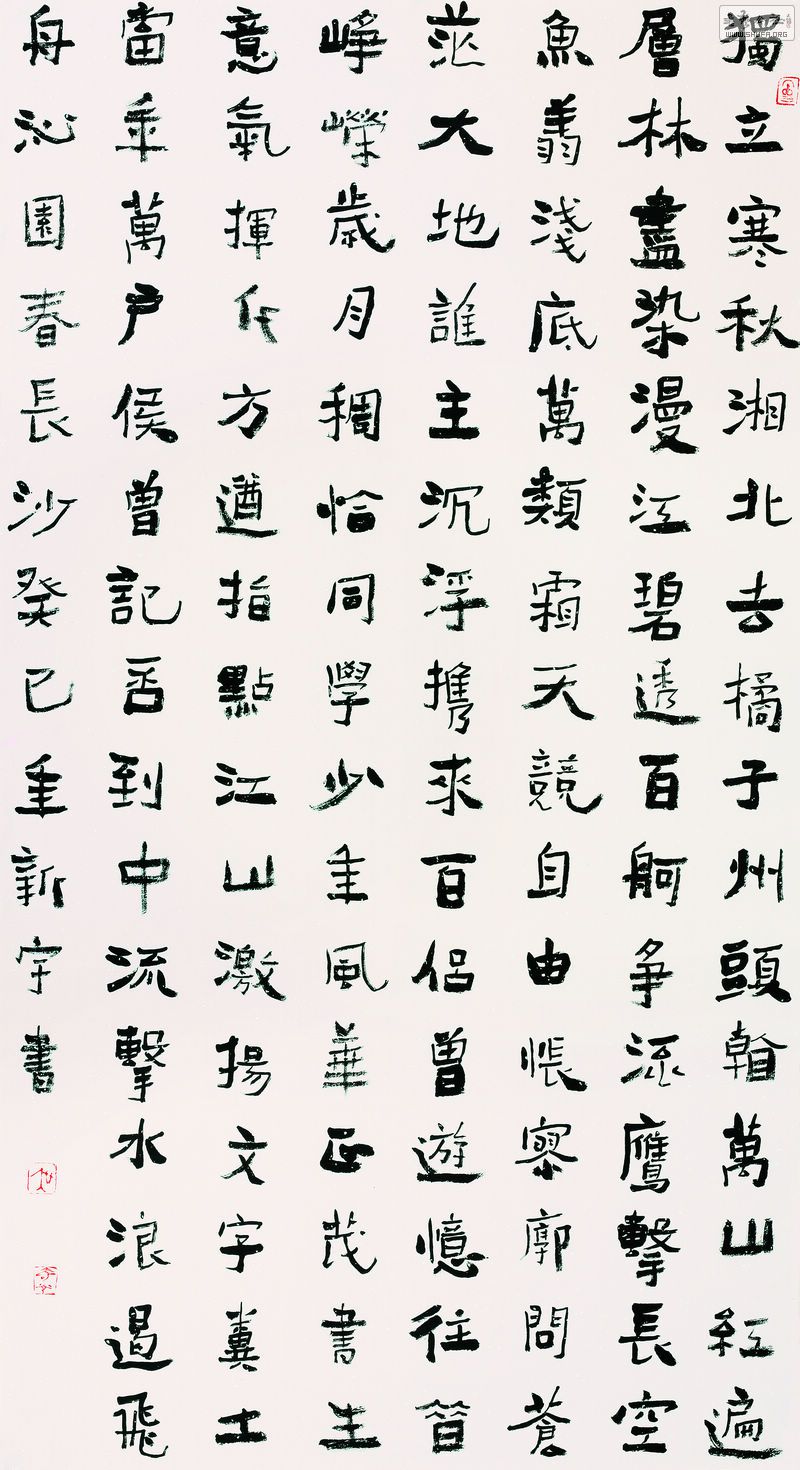 獨立寒秋湘北去橘子州頭看萬山紅遍
層林盡染漫江碧透百舸争流鷹擊長空
魚翔淺底萬類霜天競自由悵寥廓問蒼
茫大地誰主沉浮携來百侣曾遊憶往昔
崢嶸歲月稠恰同學少年風華正茂書生
意氣揮代方遒指點江山激揚文字糞土
當年萬户侯曾記否到中流擊水浪遏飛
舟沁園春長沙癸巳年新宇書
WWW.SHUFA.ORG